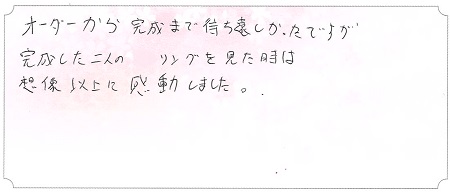 オーダーから完成まで待ち遠しかったですが
完成した二人の リングを見た時は
想像以上に感動しました。